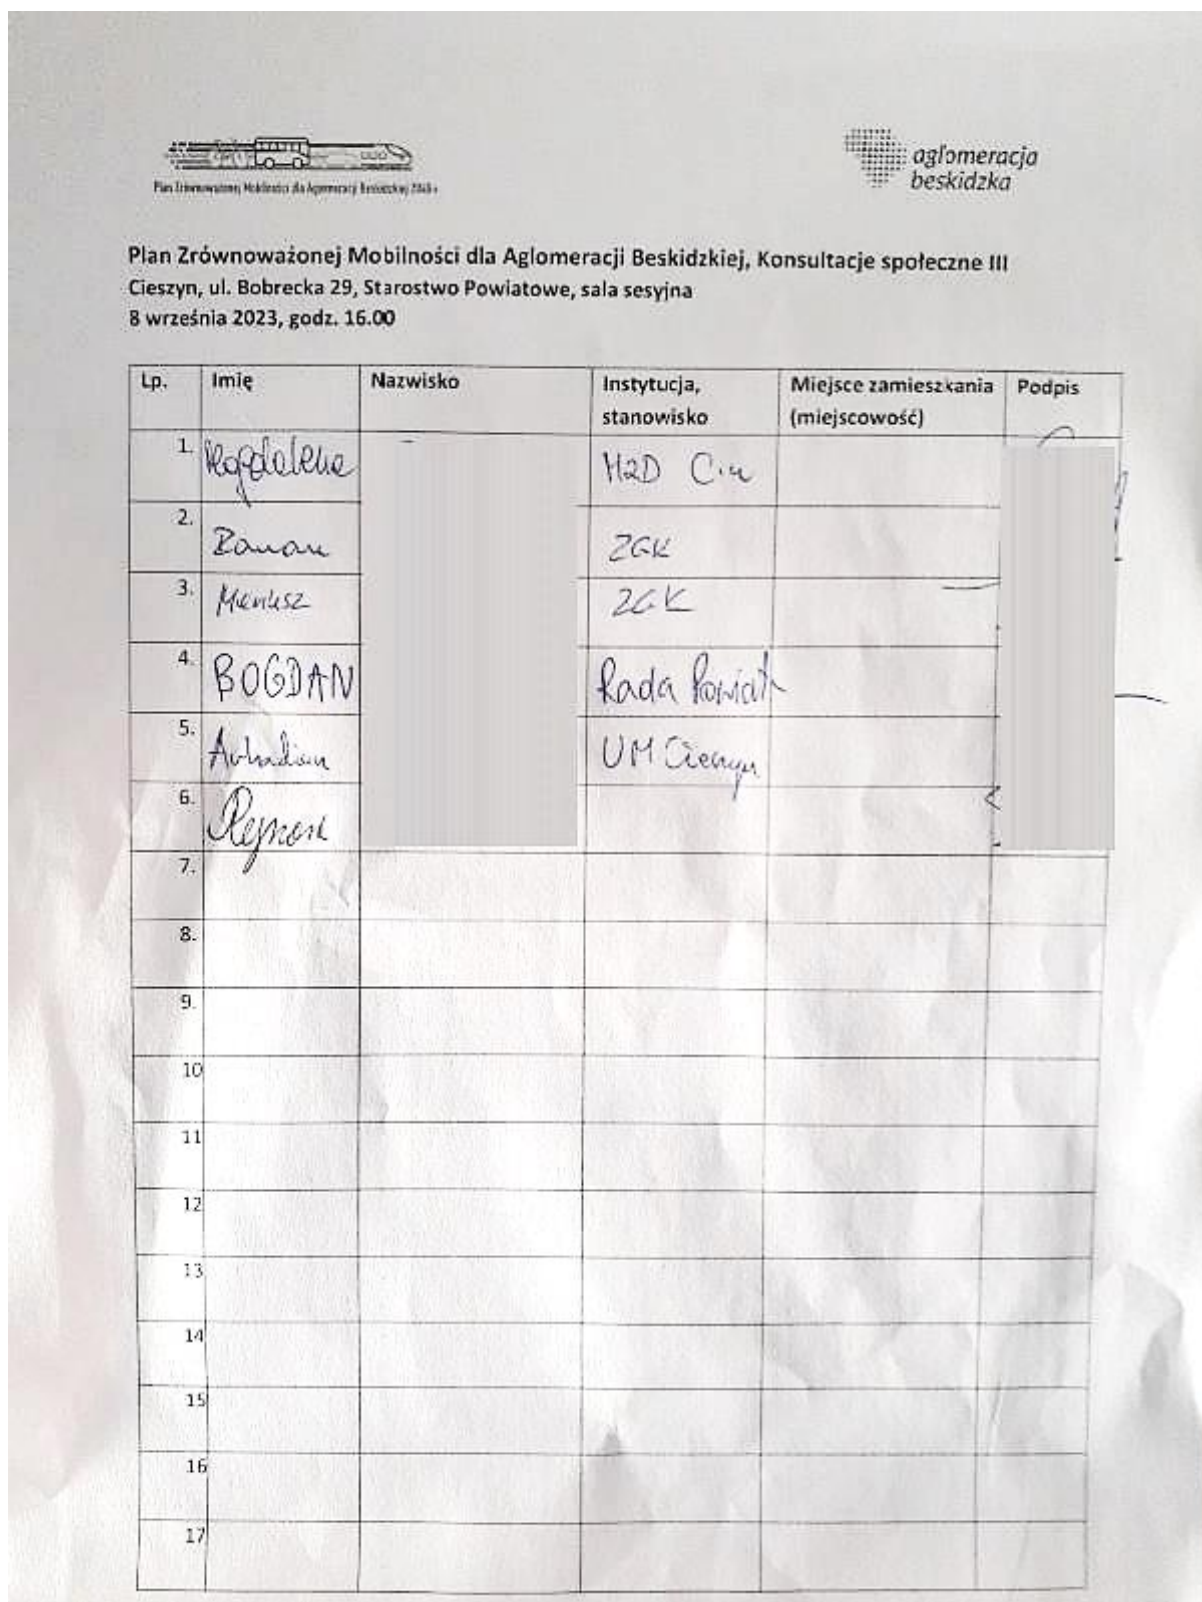 Plan Zrównoważonej Mobilności dla Aglomeracji Beskidzkiej
aglomeracja
beskidzka
Plan Zrównoważonej Mobilności dla Aglomeracji Beskidzkiej, Konsultacje społeczne III
Cieszyn, ul. Bobrecka 29, Starostwo Powiatowe, sala sesyjna
8 września 2023, godz. 16.00
Lp. Imię Nazwisko Instytucja, stanowisko Miejsce zamieszkania (miejscowość) Podpis
1. Magdalena
2. ZGK
3. Mariusz ZGK
4. BOGDAN Rada Powiat
5. Arkadiusz UM Cieszyn
6.
7.
8.
9.
10
11
12
13
14
15
16
17